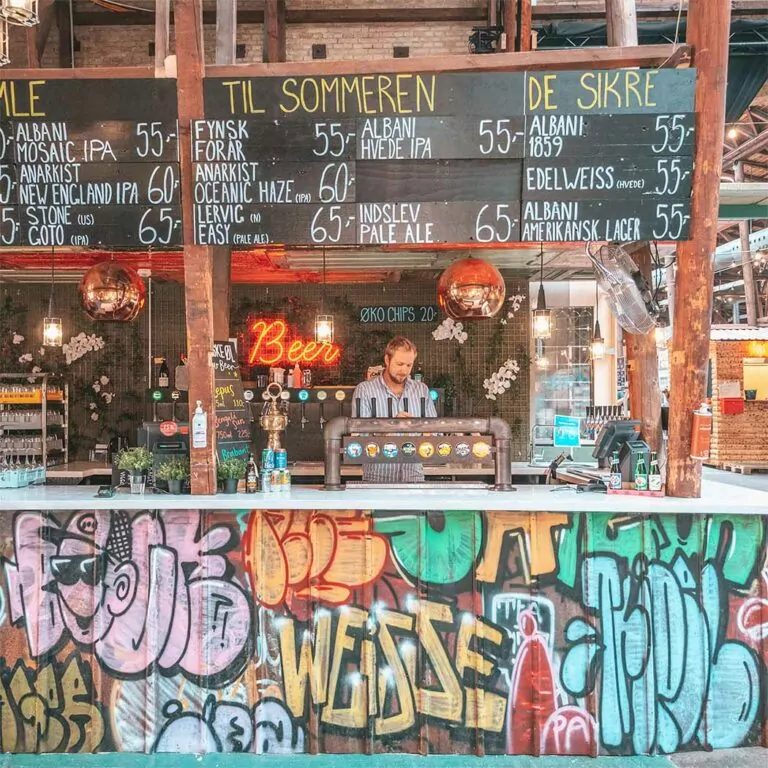 MLE
ALBANI
MOSAIC IPA 55,-
ANARKIST
NEW ENGLAND IPA 60,-
STONE (US)
GOTO (IPA) 65,-
TIL SOMMEREN
FYNSK
FORÅR 55,-
ANARKIST
OCEANIC HAZE (IPA) 60,-
LERVIG (N)
EASY (PALE ALE) 65,-
ALBANI
HVEDE IPA 55,-
INDSLEV
PALE ALE 65,-
DE SIKRE
ALBANI
1859 55,-
EDELWEISS (HVEDE) 55,-
ALBANI
AMERIKANSK LAGER 55,-
ØKO CHIPS 20,-
Beer
WEISSE
PA